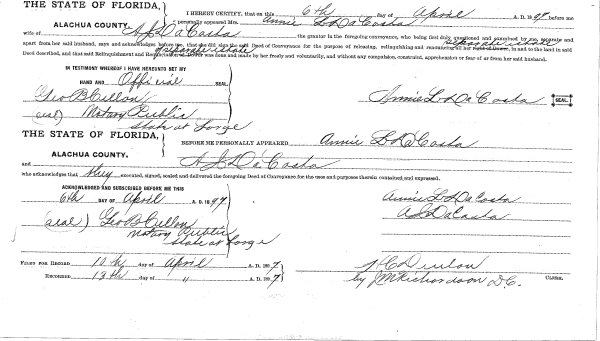 THE STATE OF FLORIDA,
ALACHUA COUNTY.
I HEREBY CERTIFY, that on this 6th day of April A. D. 1897 before me
personally appeared Mrs. Annie L. DaCosta
wife of A J DaCosta the grantor in the foregoing conveyance, who being first duly questioned and examined by me, separate and
apart from her said husband, says and acknowledges before me, that she did sign the said Deed of Conveyance for the purpose of releasing, relinquishing and renouncing all her right of Dower, in and to the land in said
Separate Estate
Deed described, and that said Relinquishment and Renunciation of Dower was done and made by her freely and voluntarily, and without any compulsion, constraint, apprehension or fear of or from her said husband.
IN TESTIMONY WHEREOF I HAVE HEREUNTO SET MY
HAND AND Official SEAL.
Geo B Cullon
(seal) Notary Public
State at Large
Annie L DaCosta SEAL.
THE STATE OF FLORIDA,
ALACHUA COUNTY.
BEFORE ME PERSONALLY APPEARED Annie L DaCosta
and A J DaCosta
who acknowledges that they executed, signed, sealed and delivered the foregoing Deed of Conveyance for the uses and purposes therein contained and expressed.
ACKNOWLEDGED AND SUBSCRIBED BEFORE ME THIS
6th DAY OF April A. D. 1897
(seal) Geo B Cullon
Notary Public
State at Large
Annie L DaCosta
A J DaCosta
FILED FOR RECORD 10th day of April A. D. 1897
RECORDED 13th day of " A. D. 1897
H C Denton
CLERK.
by J M Richardson D.C.